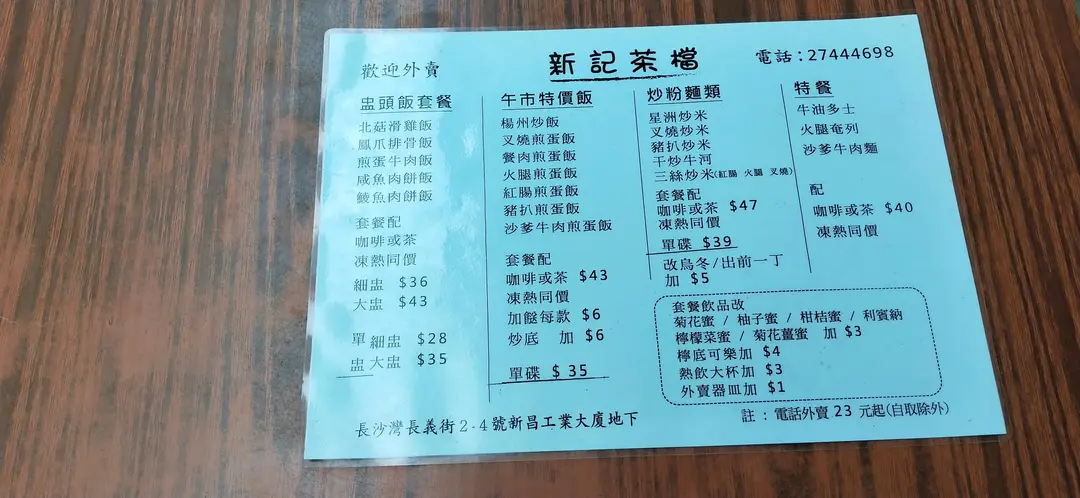 歡迎外賣
新記茶檔
電話：27444698
盅頭飯套餐
北菇滑雞飯
鳳爪排骨飯
煎蛋牛肉飯
咸魚肉餅飯
鯪魚肉餅飯
套餐配
咖啡或茶
凍熱同價
細盅 $36
大盅 $43
單 細盅 $28
盅 大盅 $35
午市特價飯
楊州炒飯
叉燒煎蛋飯
餐肉煎蛋飯
火腿煎蛋飯
紅腸煎蛋飯
豬扒煎蛋飯
沙爹牛肉煎蛋飯
套餐配
咖啡或茶 $43
凍熱同價
加餸每款 $6
炒底 加 $6
單碟 $ 35
炒粉麵類
星洲炒米
叉燒炒米
豬扒炒米
干炒牛河
三絲炒米(紅腸 火腿 叉燒)
套餐配
咖啡或茶 $47
凍熱同價
單碟 $39
改烏冬/出前一丁
加 $5
特餐
牛油多士
火腿奄列
沙爹牛肉麵
配
咖啡或茶 $40
凍熱同價
套餐飲品改
菊花蜜 / 柚子蜜 / 柑桔蜜 / 利賓納
檸檬菜蜜 / 菊花薑蜜 加 $3
檸底可樂加 $4
熱飲大杯加 $3
外賣器皿加 $1
註 : 電話外賣 23 元起(自取除外)
長沙灣長義街2-4號新昌工業大廈地下